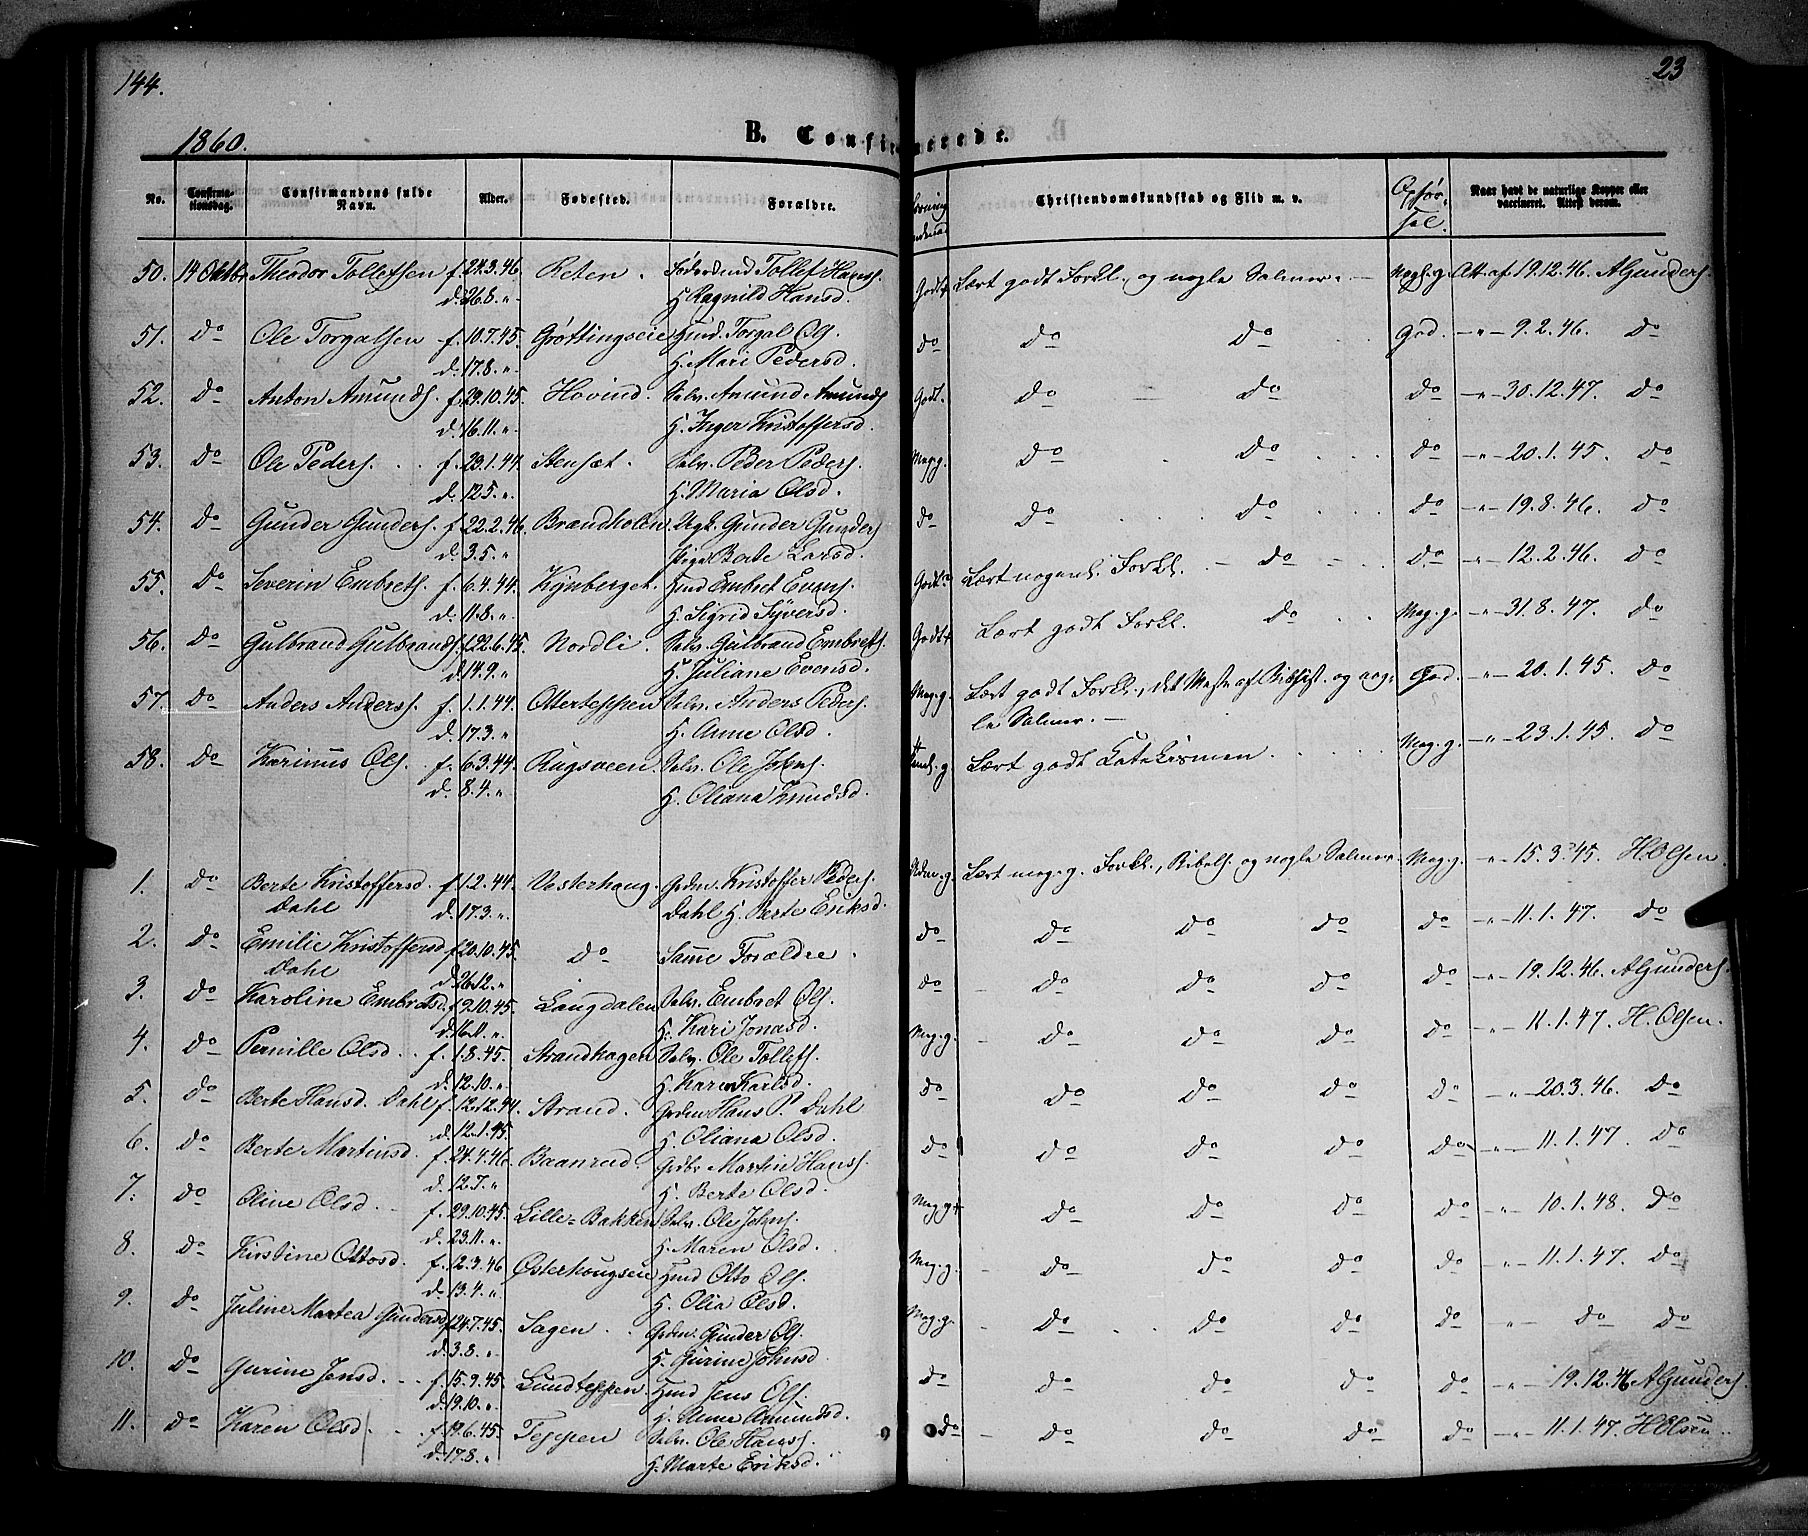 144.
23
1860.
B. Confirmerede.
No. Confirma-tionsdag. Confirmandens fulde Navn. Alder. Fødested. Forældre. Christendomskundskab og Flid m. v. Opførsel. Naar havt de naturlige Kopper eller vaccineret. Attest derom.
50. 14 Oktbr Theodor Tollefsen f. 24.3.46. Reten. Tollef Hans. Godt Lært godt Forkl., og nogle Salmer. Meg. g. Att. af 19.12.46. AGunders.
d. 26.8. " H. Ragnild Hansd.
51. do Ole Torgalsen f. 10.7.45. Grøttingseie Hmd. Torgal Ol. do do do God. " 9.2.46. do
d. 17.8. " H. Mari Pedersd.
52. do Anton Amunds. f. 29.10.45. Hovind. Selv. Amund Amunds Godt. do do do " 30.12.47. do
d. 16.11. " H. Inger Kristoffersd.
53. do Ole Peders. f. 23.1.44. Stensæt. Selv. Peder Peders. Meg. g. do do do " 20.1.45. do
d. 12.5. " H. Maria Olsd.
54. do Gunder Gunders. f. 22.2.46. Brandholen. Ugk. Gunder Gunders do do do do " 19.8.46. do
d. 3.5. " Pige Berte Larsd.
55. do Severin Embrets. f. 6.4.44. Kynberget. Hmd Embret Evens. Godt Lært nogenl. Forkl. do do " 12.2.46. do
d. 11.8. " H. Sigrid Syversd.
56. do Gulbrand Gulbrands. f. 22.6.45. Nordli. Selv. Gulbrand Embrets. Godt Lært godt Forkl. do Meg. g. " 31.8.47. do
d. 14.9. " H. Juliane Evensd.
57. do Anders Anders. f. 1.1.44. Otterteppen Selv. Anders Peders. Meg. g. Lært godt Forkl., det Meste af Bibhist. og nog- God. " 20.1.45. do
d. 17.3. " H. Anne Olsd. le Salmer.
58. do Karinus Ols. f. 6.3.44. Rugsveen. Selv. Ole Johns. Lært godt Katekismen. Meg. g. " 23.1.45. do
d. 8.4. " H. Oliana Knudsd.
1. do Berte Kristoffersd. f. 1.2.44. Vesterhaug. Grdm. Kristoffer Peders. Udm. g. Lært meg. g. Forkl., Bibels. og nogle Salmer. Meg. g. " 15.3.45. H. Olsen.
Dahl d. 17.3. " Dahl H. Berte Eriksd.
2. do Emilie Kristoffersd. f. 20.10.45. do Samme Forældre. do do do do do " 11.1.47. do
Dahl d. 26.12. "
3. do Karoline Embretsd. f. 12.10.45. Langdalen Selv. Embret Ols. do do do do do " 19.12.46. AGunders.
d. 16.11. " H. Kari Jonasd.
4. do Pernille Olsd. f. 1.8.45. Strandhagen Selv. Ole Tollefs. Meg. g. do do do do " 11.1.47. H. Olsen.
d. 12.10. " H. Karen Karlsd.
5. do Berte Hansd. Dahl f. 12.12.44. Strand. Grdm Hans P. Dahl do do do do do " 20.3.46. do
d. 12.1.45. H. Oliana Olsd.
6. do Berte Martinsd. f. 24.4.46. Baanrud. Grdbr Martin Hans. do do do do do " 11.1.47. do
d. 12.7. " H. Berte Olsd.
7. do Oline Olsd. f. 29.10.45. Lille-Bakken Selv. Ole Johns. Meg. g. do do do do " 10.1.48. do
d. 23.11. " H. Maren Olsd.
8. do Kirstine Ottosd. f. 12.3.46 Østerhougseie Hmd Otto Ols. Meg. g. do do do do " 11.1.47. do
d. 13.4. " H. Olia Olsd.
9. do Juline Martea Gundersd f. 24.7.45. Sagen. Grdm. Gunder Ols. Meg. g. do do do do " do do
d. 3.8. " H. Gurine Johnsd.
10. do Gurine Jensd. f. 15.9.45 Lundteppen Hmd Jens Ols. do do do do do " 19.12.46 AGunders.
d. 19.10. " H. Anne Amundsd.
11. do Karen Olsd. f. 19.6.45. Teppen Selv. Ole Hans. do do do do do " 11.1.47. H Olsen.
d. 17.8. " H. Marte Eriksd.